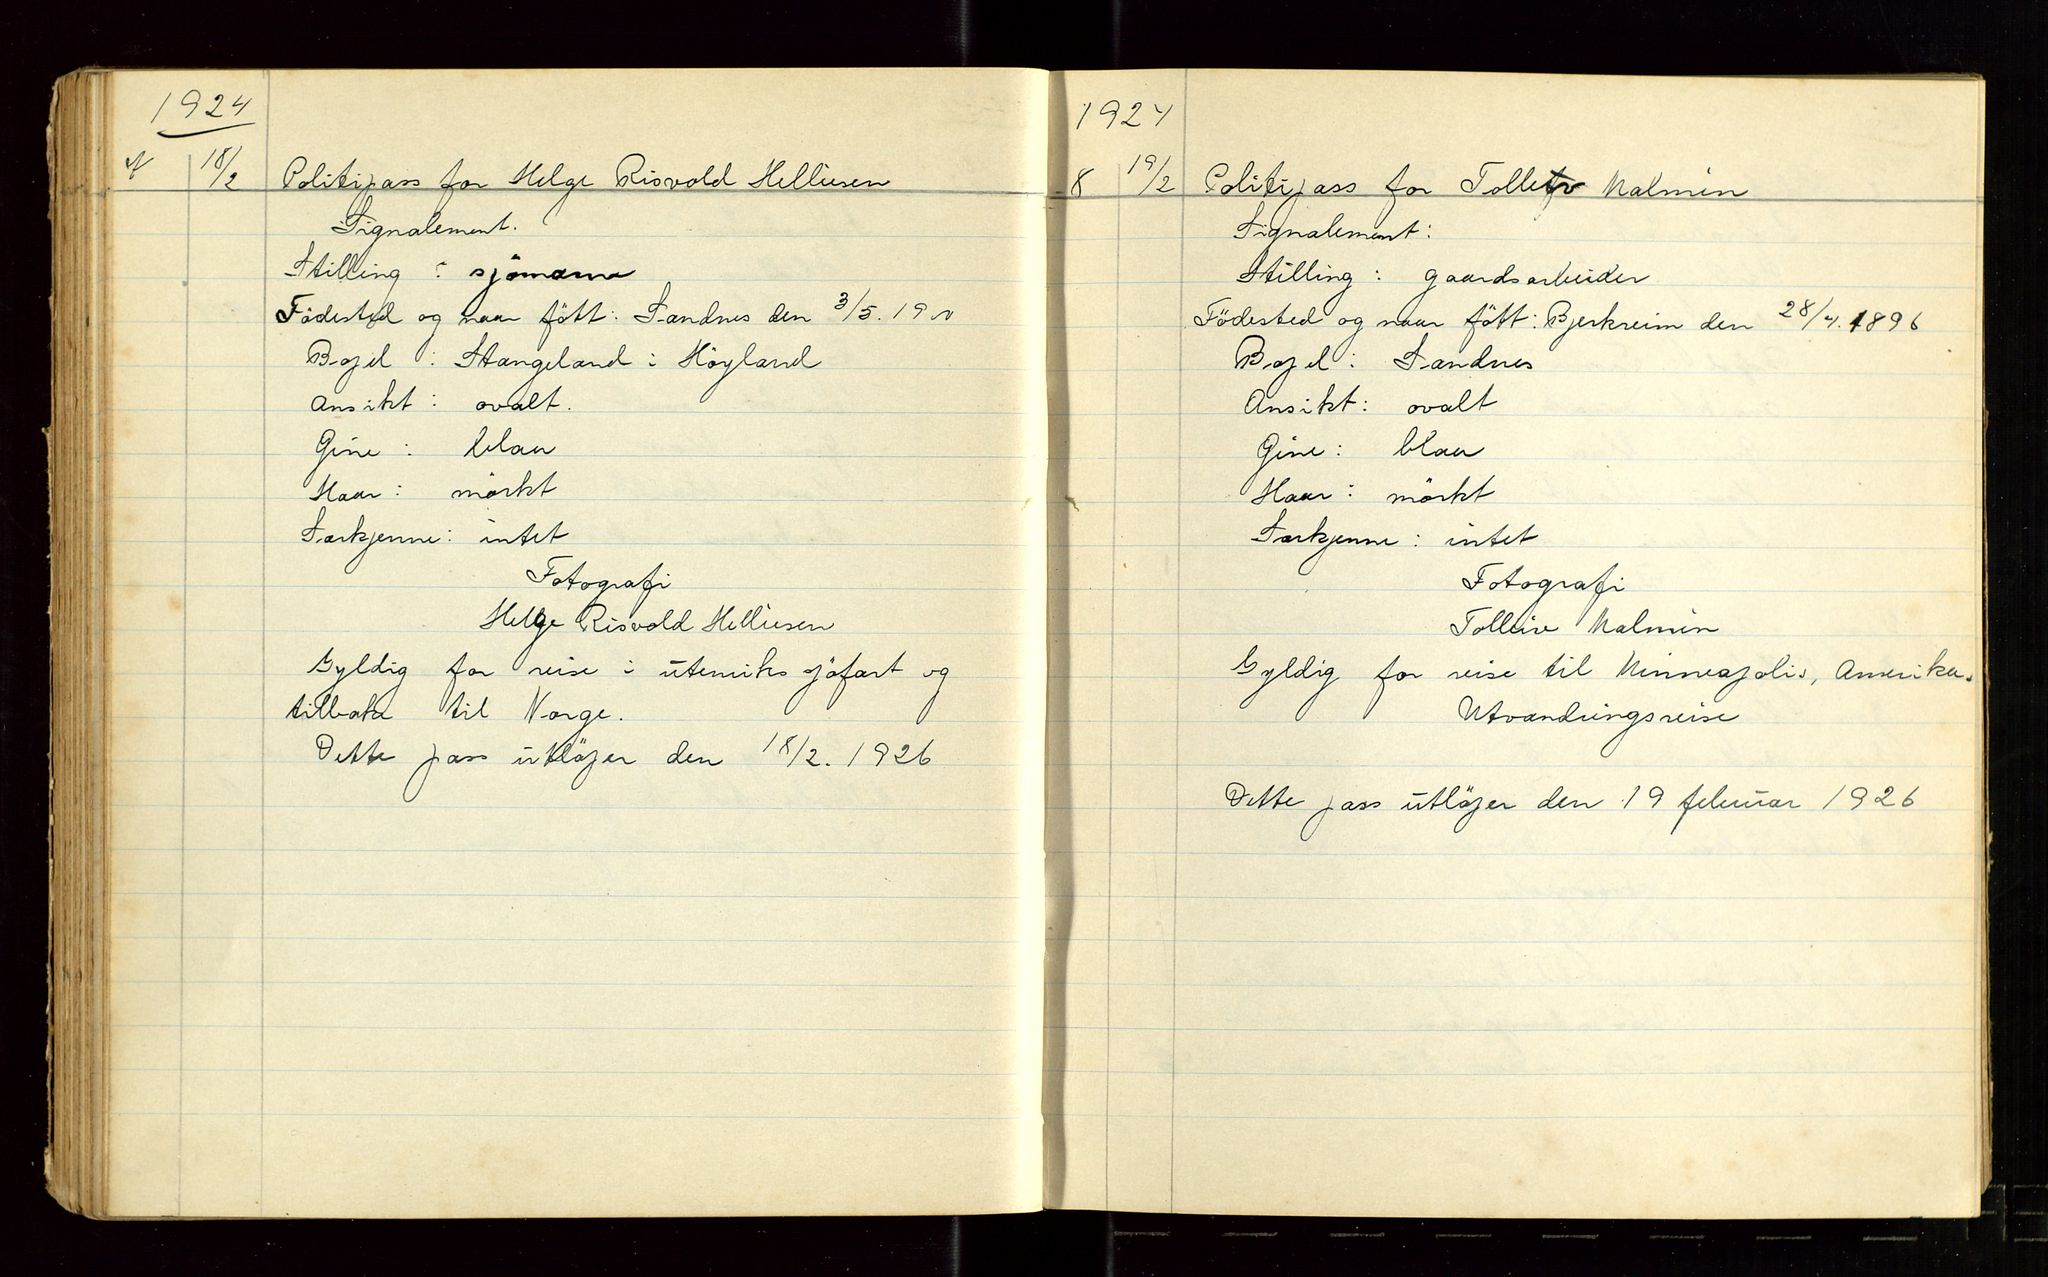 1924
7 18/2 Politipass for Helge Risvold Helliesen
Signalement.
Stilling : sjömann
Födested og naar fött: Sandnes den 3/5. 1900
Bopel : Stangeland i Höyland
Ansikt : ovalt.
Öine : blaa
Haar : mörkt
Særkjenne : intet
Fotografi
Helge Risvold Helliesen
Gyldig for reise i utenriks sjöfart og
tilbake til Norge.
Dette pass utlöper den 18/2. 1926
1924
8 19/2 Politipass for Tolleiv Malmin
Signalement:
Stilling : gaardsarbeider
Födested og naar fött: Bjerkreim den 28/4. 1896
Bopel : Sandnes
Ansikt : ovalt
Öine : blaa
Haar : mörkt
Særkjenne : intet
Fotografi
Tolleiv Malmin
Gyldig for reise til Minneapolis, Amerika.
Utvandringsreise
Dette pass utlöper den 19 februar 1926